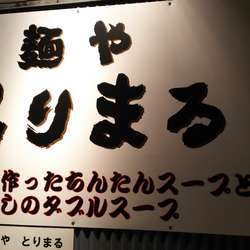 麺や
りまる
作ったちんたんスープと
しのダブルスープ
や とりまる